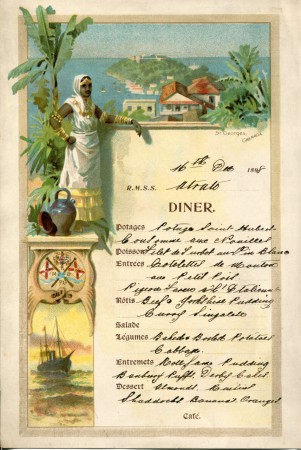 St Georges,
Grenada
16th Dec 1898
R.M.S.S. Atrato
DINER.
Potages Potage Saint Hubert
Consommé aux Nouilles
Poisson Filet de Turbot au Vin Blanc
Entrées Côtelettes de Mouton
aux Petit Pois
Pigeon
Rôtis Beef & Yorkshire Pudding
Curry
Salade
Légumes Baked & Boiled Potatoes
Cabbage
Entremets Pudding
Banbury Puffs Derby Cakes
Dessert Almonds Raisins
Shaddocks Bananas Oranges
Café.